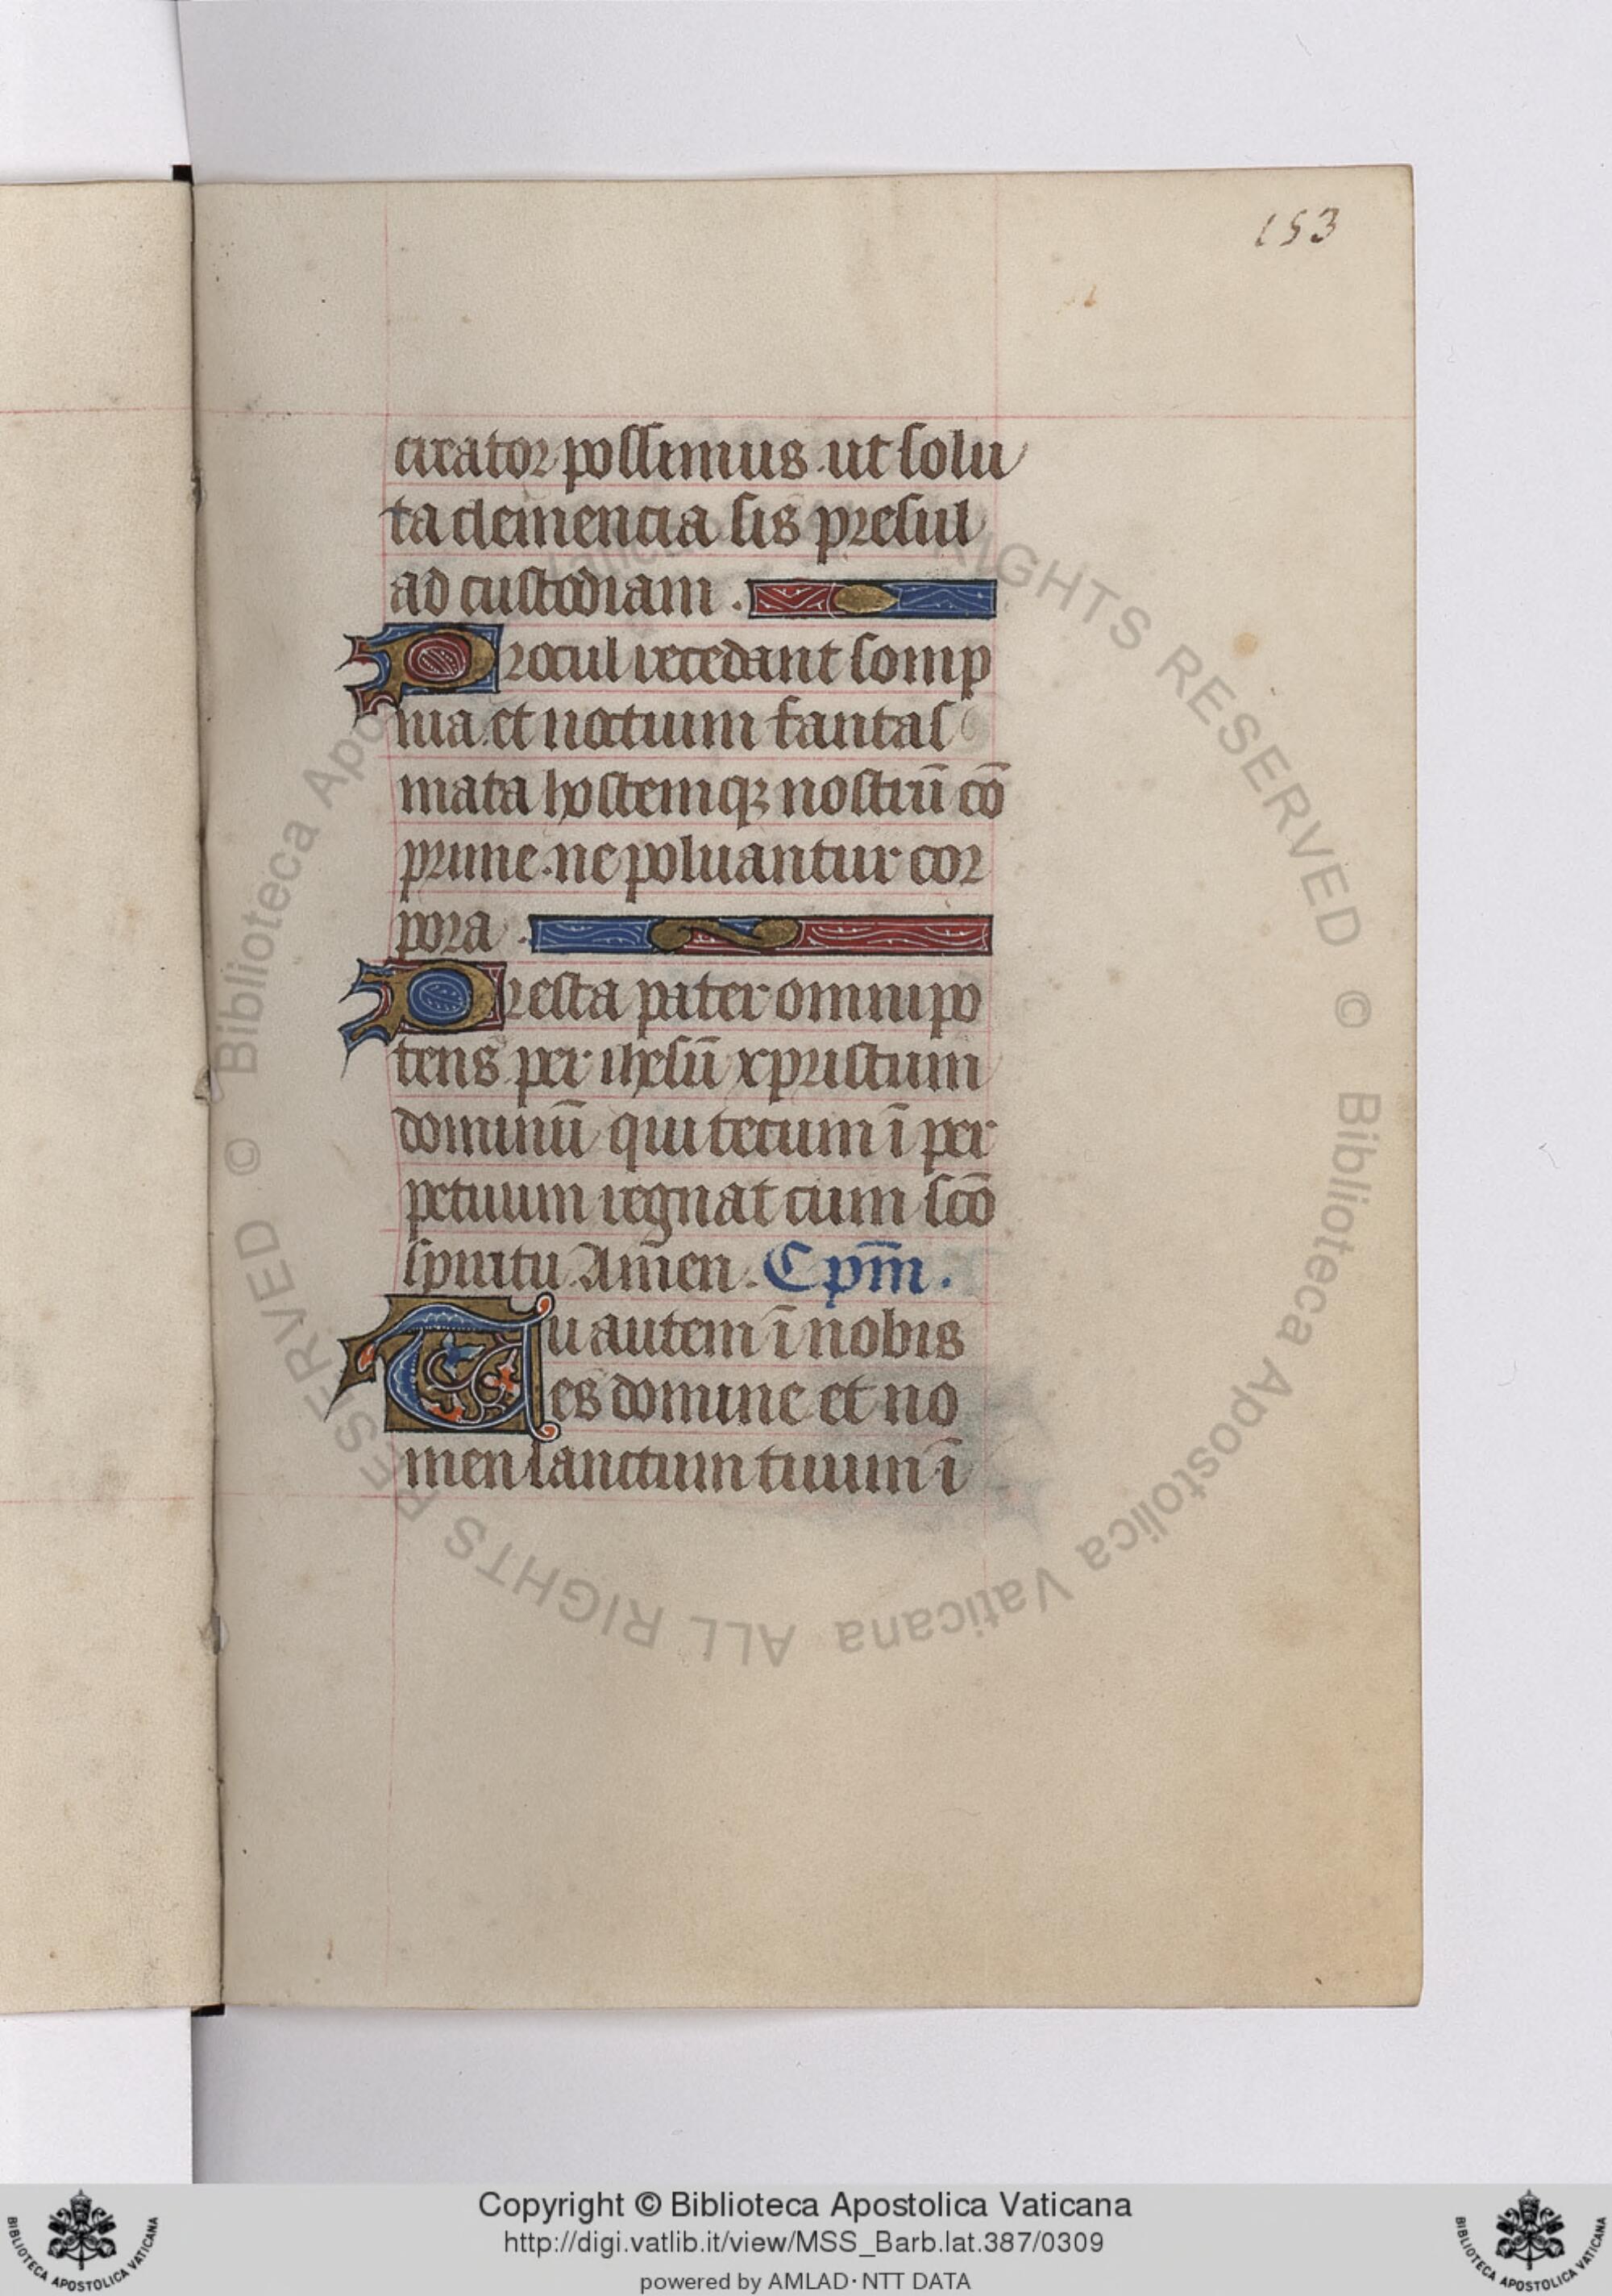 153
creator possimus. ut solu
ta clemencia sis presul
ad custodiam.
Procul recedant somp
nia. et noctium fantas
mata hostemqꝫ nostrū cō
prime. ne poluantur cor
pora.
Presta pater omnipo
tens per ihesū xpristum
dominū qui tecum ī per
petuum regnat cum scō
spiritu. Am̄en. Cpm̄.
Tu autem ī nobis
es domine et no
men sanctum tuum ī
© Biblioteca Apostolica Vaticana ALL RIGHTS RESERVED
© Biblioteca Apostolica Vaticana ALL RIGHTS RESERVED
Copyright © Biblioteca Apostolica Vaticana
http://digi.vatlib.it/view/MSS_Barb.lat.387/0309
powered by AMLAD·NTT DATA
BIBLIOTECA APOSTOLICA VATICANA
BIBLIOTECA APOSTOLICA VATICANA